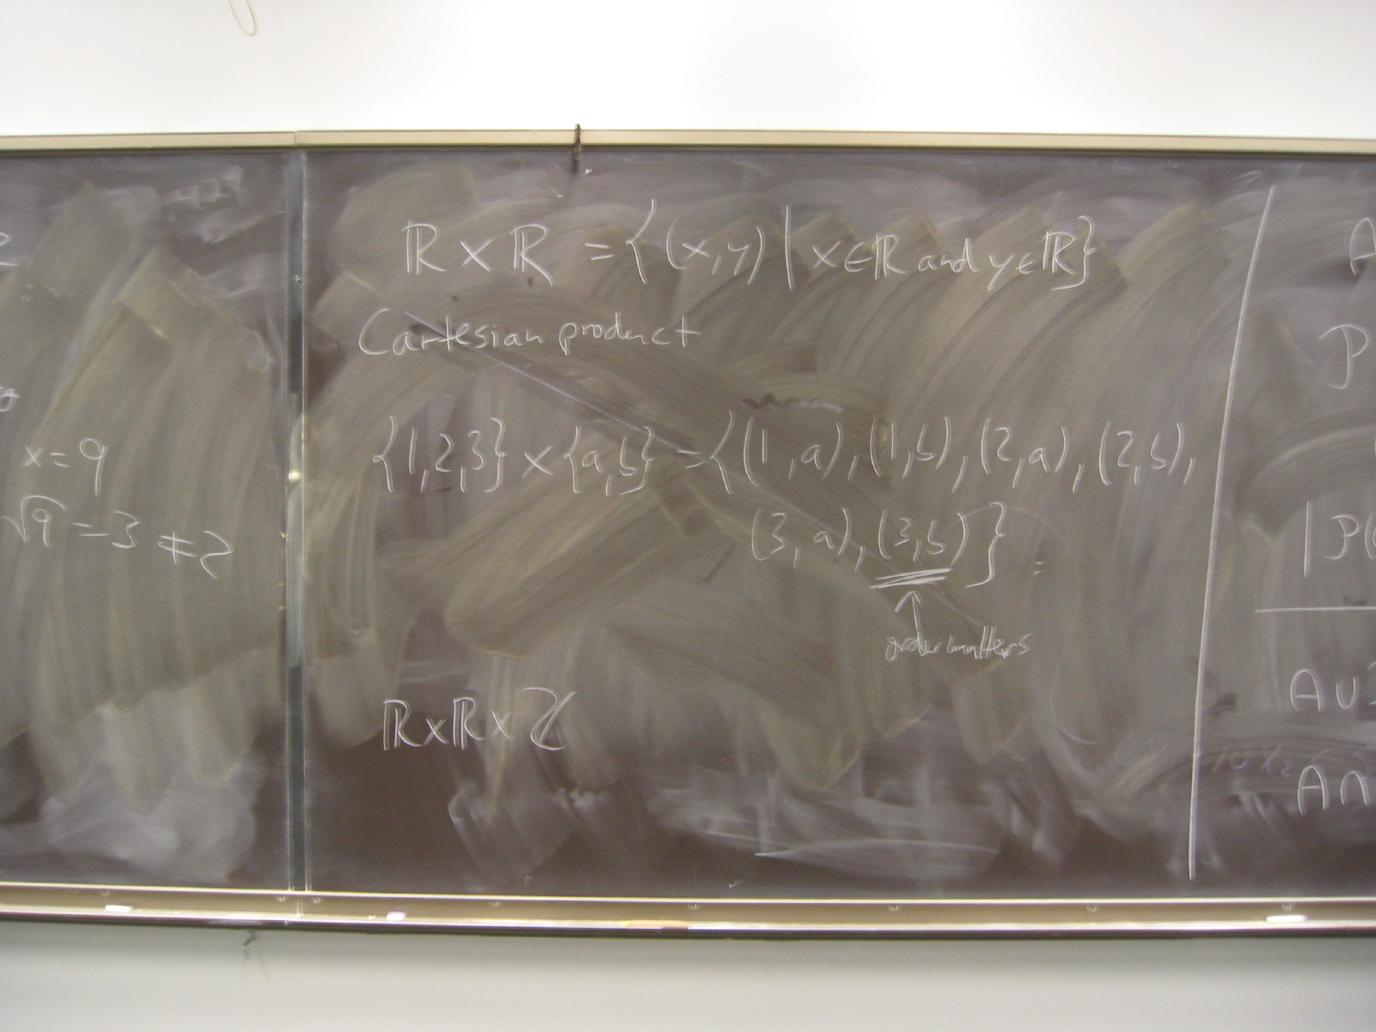 x=9
√9=3≠2
ℝ×ℝ={(x,y)|x∈ℝ and y∈ℝ}
Cartesian product
{1,2,3}×{a,b}={(1,a),(1,b),(2,a),(2,b),
(3,a),(3,b)}
↑
order matters
ℝ×ℝ×ℤ
A
P
|P(
A∪
A∩